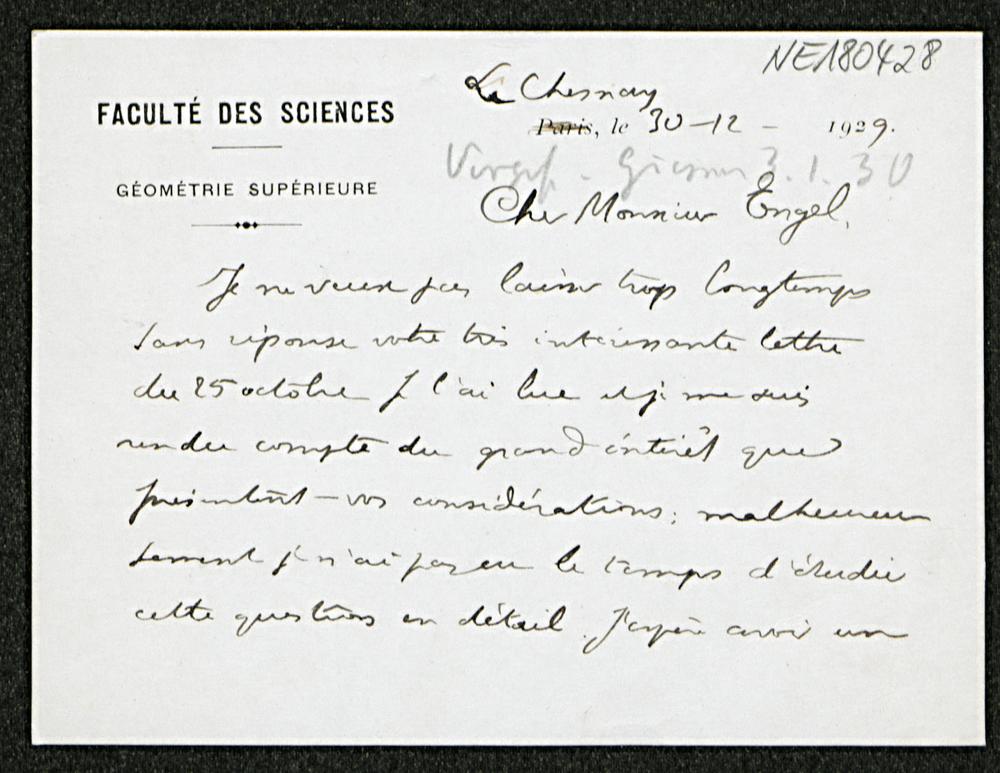 NE180428
Le Chesnay
FACULTÉ DES SCIENCES
Paris, le 30-12- 1929.
GÉOMÉTRIE SUPÉRIEURE
3.1.30
Cher Monsieur Engel,
Je ne veux pas laisser trop longtemps
sans réponse votre très intéressante lettre
du 25 octobre Je l'ai lue et je me suis
rendu compte du grand intérêt que
présentent vos considérations; malheureu
sement je n'ai pas eu le temps d'étudier
cette question en détail. J'espère avoir un